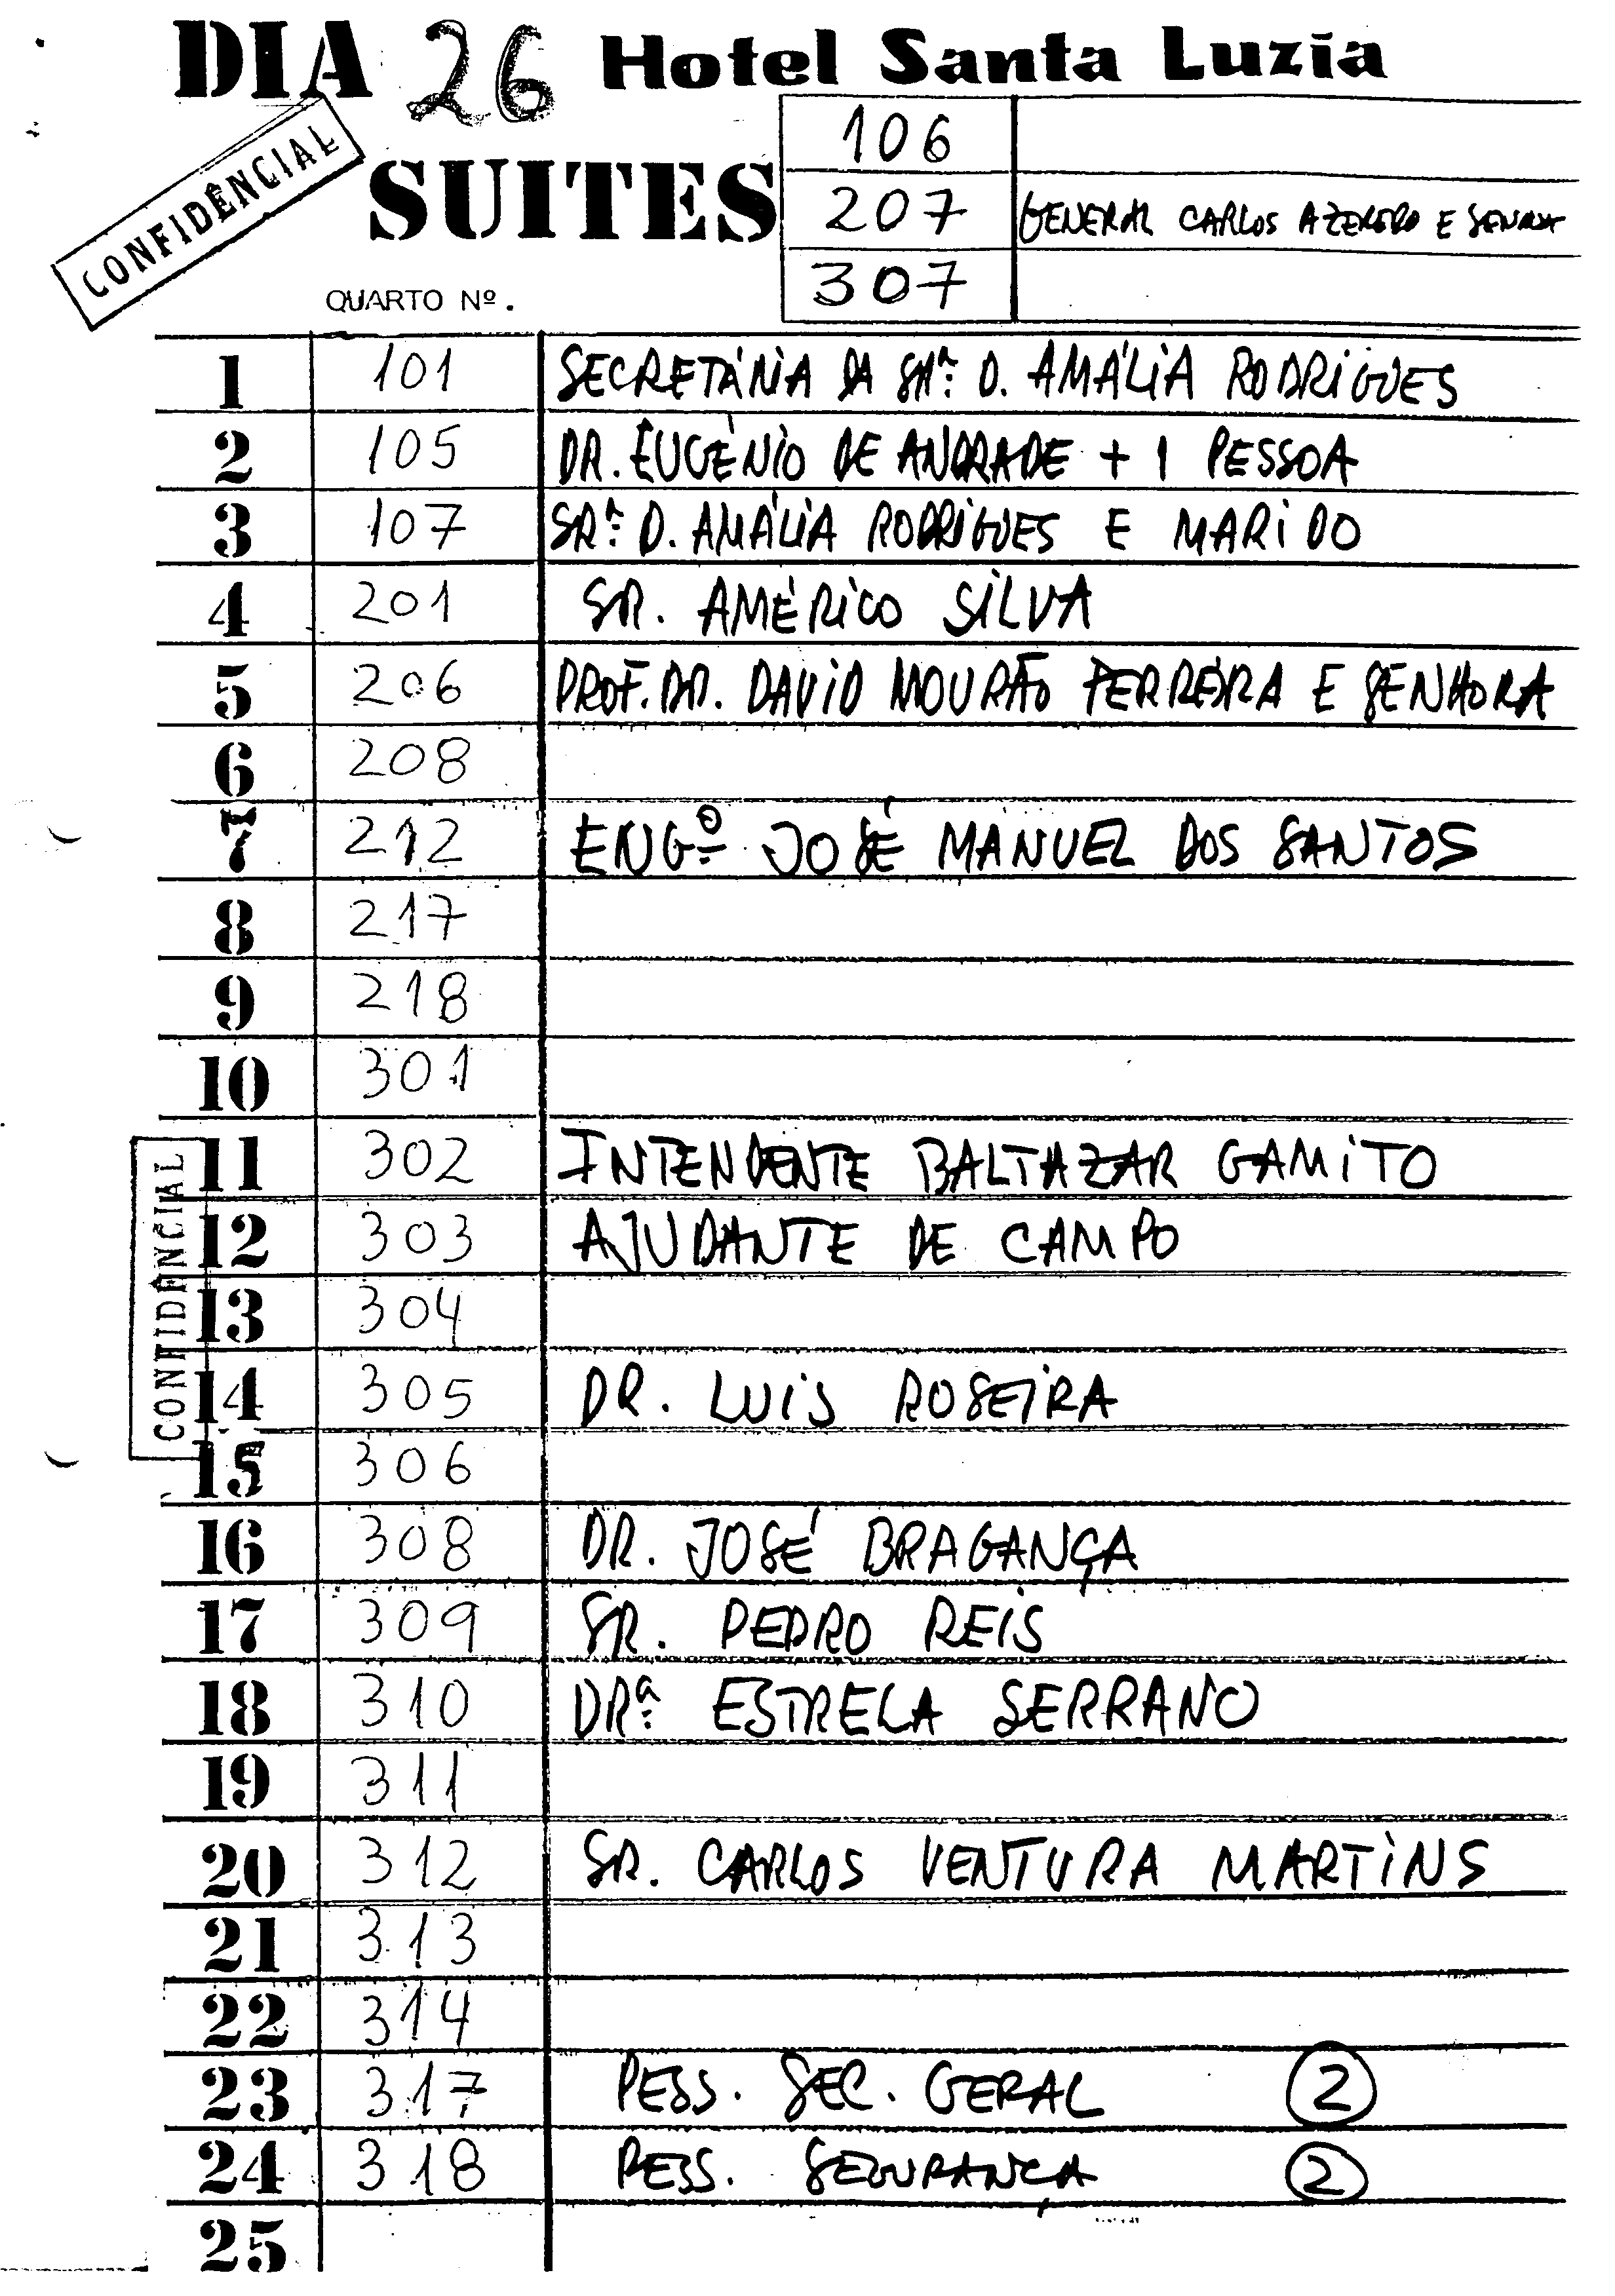 DIA 26 Hotel Santa Luzia
CONFIDÊNCIAL
SUITES
106
207 GENERAL CARLOS AZEREDO E SENHORA
307
QUARTO Nº.
1 101 SECRETÁRIA DA SRª. D. AMÁLIA RODRIGUES
2 105 DR. EUGÉNIO DE ANDRADE + 1 PESSOA
3 107 SRª. D. AMÁLIA RODRIGUES E MARIDO
4 201 SR. AMÉRICO SILVA
5 206 PROF. DR. DAVID MOURÃO FERREIRA E SENHORA
6 208
7 212 ENGº. JOSÉ MANUEL DOS SANTOS
8 217
9 218
10 301
11 302 INTENDENTE BALTHAZAR GAMITO
12 303 AJUDANTE DE CAMPO
13 304
14 305 DR. LUIS ROSEIRA
15 306
16 308 DR. JOSÉ BRAGANÇA
17 309 SR. PEDRO REIS
18 310 DRª. ESTRELA SERRANO
19 311
20 312 SR. CARLOS VENTURA MARTINS
21 313
22 314
23 317 PESS. SEC. GERAL 2
24 318 PESS. SEGURANÇA 2
25
CONFIDÊNCIAL